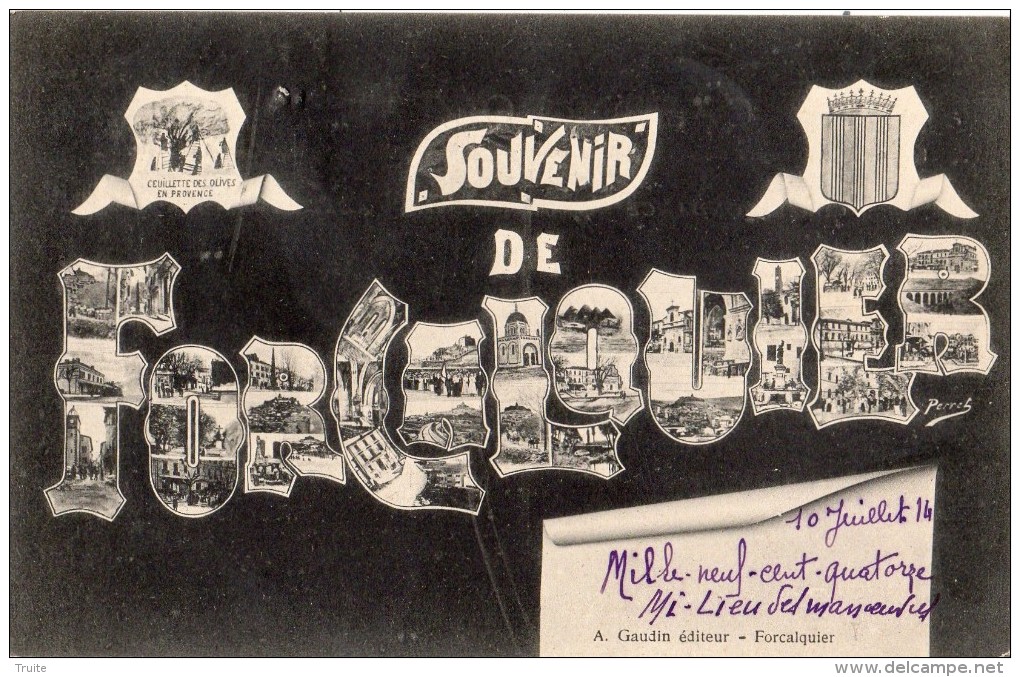 CEUILLETTE DES OLIVES
EN PROVENCE
SOUVENIR
DE
FORCALQUIER
Perret
10 Juillet 14
Mille-neuf-cent-quatorze
Mi-Lieu des
A. Gaudin éditeur - Forcalquier
Truite
www.delcampe.net